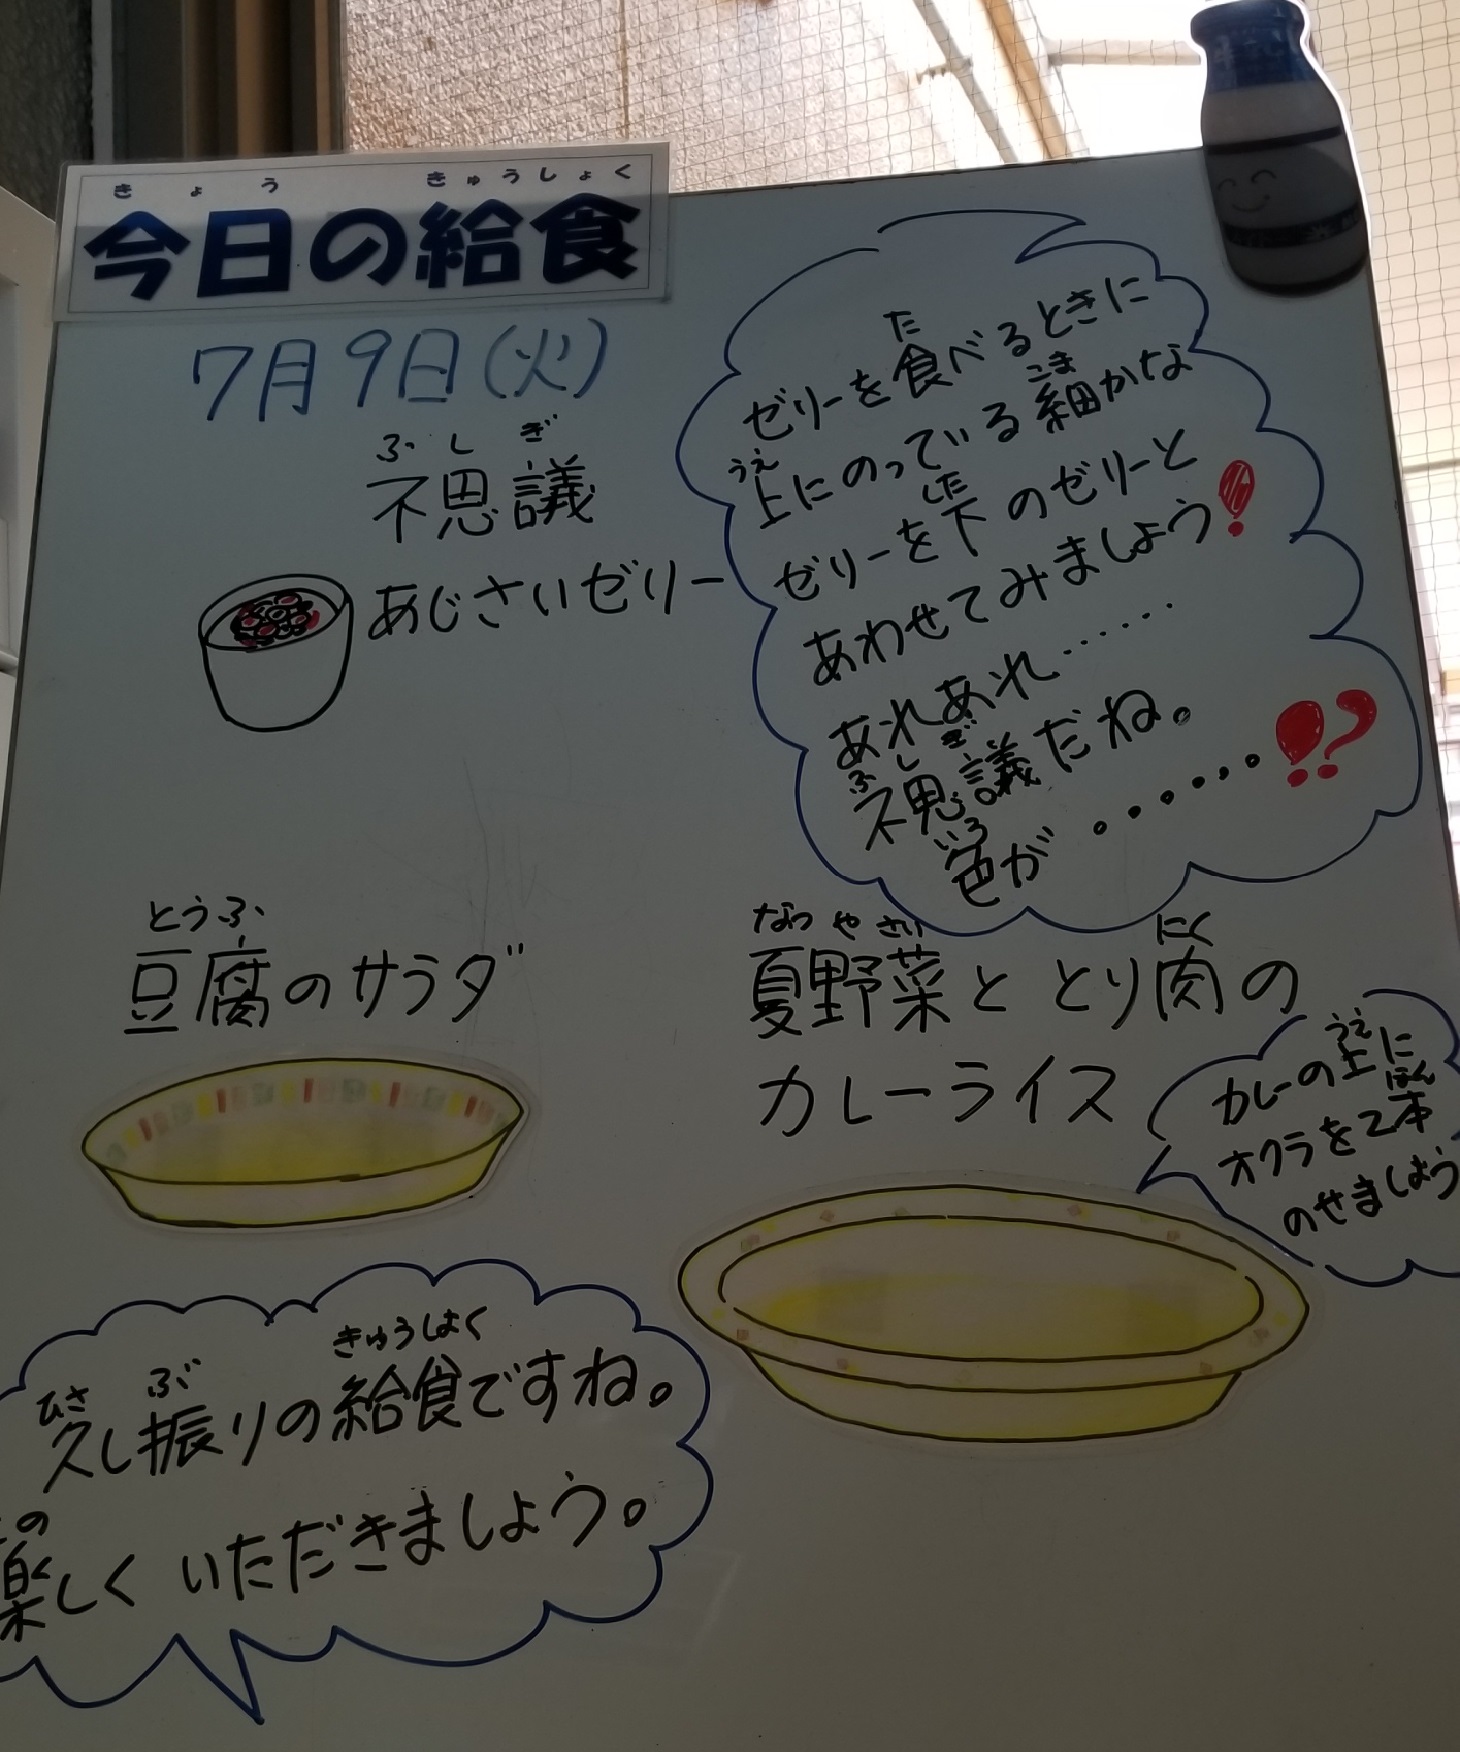 きょう きゅうしょく
今日の給食
7月9日(火)
ふしぎ
不思議
あじさいゼリー
た
ゼリーを食べるときに
こま
上にのっている細かな
うえ
した
ゼリーを下のゼリーと
あわせてみましょう!
あれあれ……
ふしぎ
不思議だね。
いろ
色が ・・・・・・!?
とうふ
豆腐のサラダ
なつやさい にく
夏野菜ととり肉の
カレーライス
うえ
カレーの上に
ほん
オクラを2本
のせましょう
きゅうしょく
ひさ ぶ
久し振りの給食ですね。
の
楽しくいただきましょう。